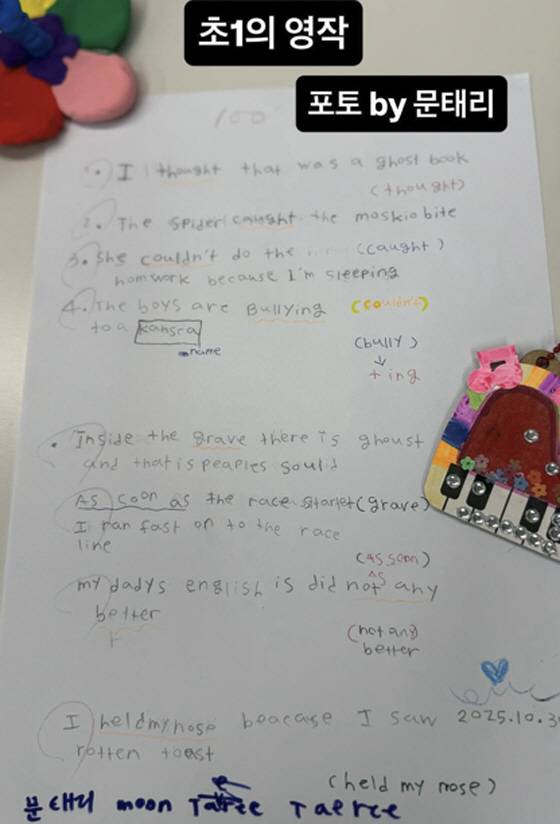 초1의 영작
포토 by 문태리
100
1. I thought that was a ghost book
(thought)
2. The Spider caught the moskio bite
3. She couldn't do the (caught)
homwork because I'm sleeping
4. The boys are Bullying (couldn't)
to a kansea
name
(bully)
↓
+ ing
. Inside the grave there is ghoust
and that is peaples sould
As soon as the race startet (grave)
I ran fast on to the race
line
(As soon)
As
my dadys english is did not any
better
(not any)
better
I held my nose beacase I saw 2025.10.3
rotten toast
(held my nose)
문태리 moon Taeree